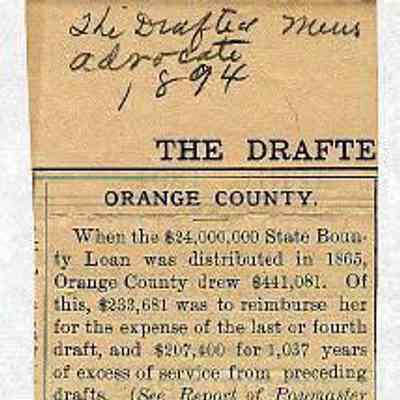 The Drafted Mens
Advocate
1894
THE DRAFTE
ORANGE COUNTY.
When the $24,000,000 State Boun-
ty Loan was distributed in 1865,
Orange County drew $441,081. Of
this, $233,681 was to reimburse her
for the expense of the last or fourth
draft, and $207,400 for 1,037 years
of excess of service from preceding
drafts. (See Report of Paymaster